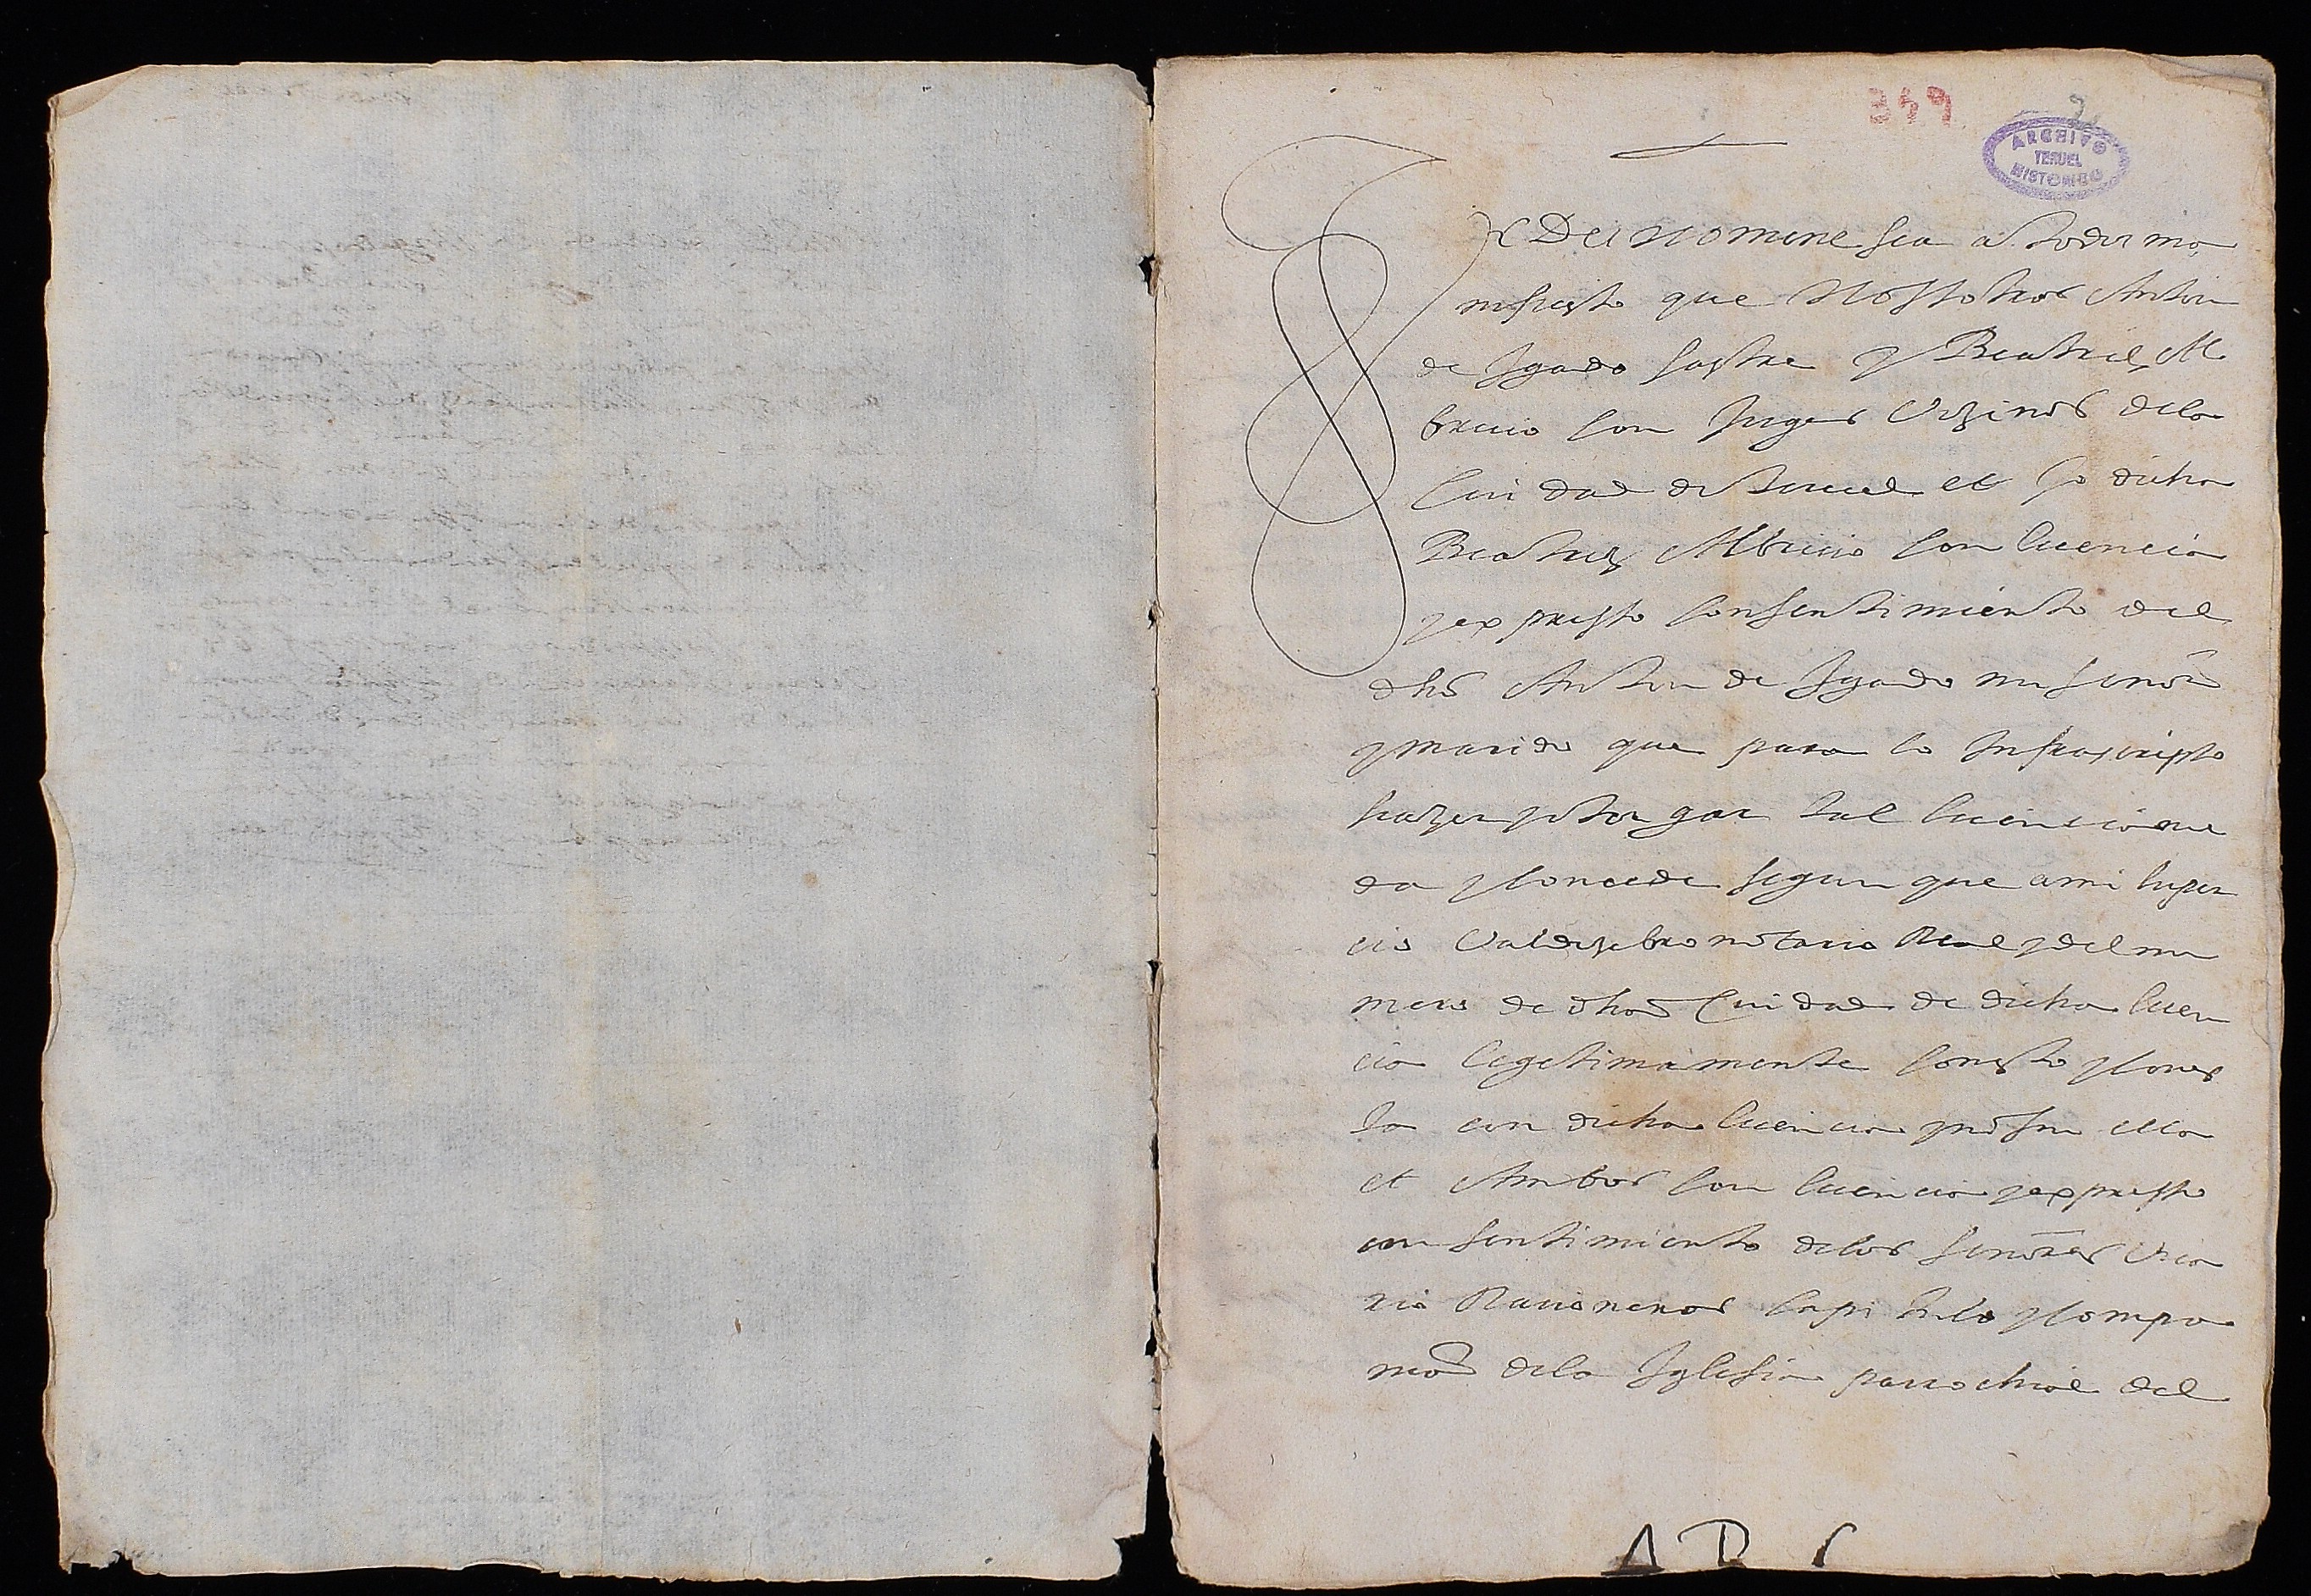 359
ARCHIVO
TERUEL
HISTORICO
Dei nomine sea a todos ma
nifiesto que Nossotros Anton
de Igado sastre y Beatriz Al
bricio conjuges Vezinos de la
Ciudad de teruel et yo dicha
Beatriz Albricio con licencia
y expresso consentimiento del
dho Anton de Igado mi senor
y marido que para lo Infrascripto
hazer y otorgar tal licencia me
da y concede segun que a mi luper
cio Valdezebro notario Real y del nu
mero de dha Ciudad de dicha licen
cia legitimamente consto y cons
ta con dicha licencia y no sin ella
et Ambos con licencia y expresso
consentimiento de los senores Vica
rio Racioneros capitulo y compa
nia de la Iglesia parrochial del